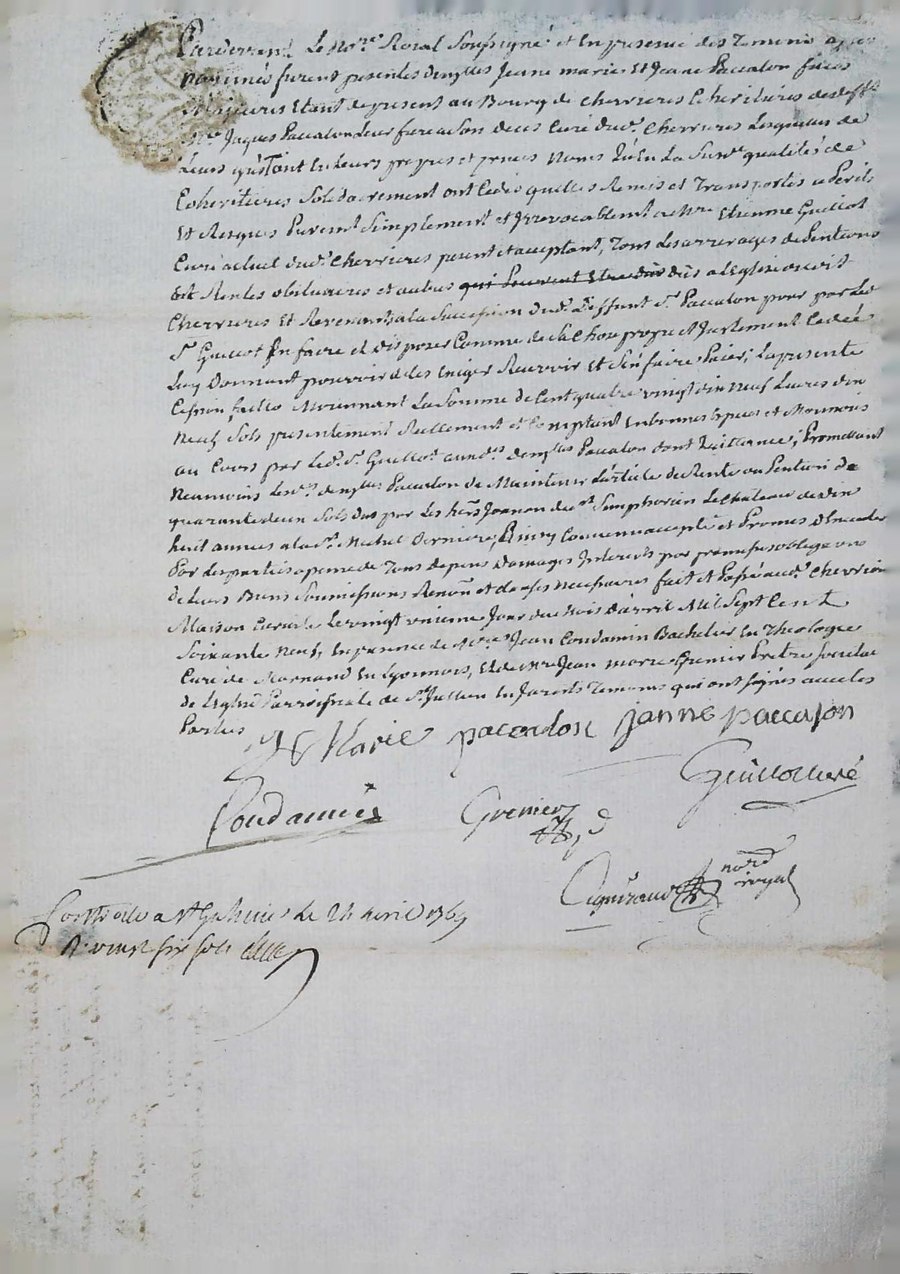 Pardevant Le No.re Roral Soussigné et En presence des Temoins apres
nommés furent presentes demlles Jeane marie Et Jeane Paccalon filles
Majeures Etant de present au Bourg de Cherrieres Coheritieres de deff.t
M.re Jaques Paccalon Leur frere a son deces Curé dud. Cherrieres Lesquelles de
Leurs gré Tant En Leurs propres et privés Noms qu'En La Susd.e qualités de
Coheritieres Solidairement ont Cedés quittés Remis et Transportés a Perils
Et Risques Purem.t Simplement et Irrevocablem.t a M.re Etienne Guillot
Curé actuel dud. Cherrieres present et acceptant, Tous Les arrerages de Pentions
Et Rentes obituaires et autres qui Peuvent Etre dûs dûs a L'Eglise
Cherrieres Et Revenants a la Succession dud. Deffunt S.r Paccalon pour par Led.
S.r Guillot En faire et disposer Comme de sa Chose propre et Justement Cedée
Luy Donnant pouvoir de Les Exiger Recevoir et S'en faire Païer; La presente
Cession faitte Moiennant La Somme de Cent quatre vingt dix Neuf Livres dix
Neuf Sols presentement Reellement et Comptant En bonnes Especes et Monnoies
au Cours par Led. S.r Guillot auxd. demlles Paccalon dont Quittance; Promettant
Neanmoins Lesd. demlles Paccalon de Maintenir L'article de Rente ou Pention de
quarante deux Sols dus par Les hers Joanon de S.t Simphorien Le Chateau de dix
huit années a la S.t Michel Derniere, Ainsy Convenu accepté et Promis
Par Les parties a peine de Tous depens Damages Interets par
de Leurs Biens Soumissions Renon.s et clauses Necessaires fait et Passé aud. Cherrieres
Maison Curiale Le vingt unieme Jour du Mois d'avril Mil Sept Cent
Soixante Neuf, En presence de M.re Jean Coudamin Bachelier En Theologie
Curé de Marnand En Lyonnois, Et de M.re Jean marie Grenier Pretre Societaire
de L'Eglise Parroissiale de S.t Julien En Jarests Temoins qui ont Signés avec Les
Parties
Marie paccalon janne paccalon
Guillot curé
Coudamin Grenier
nore royal
Controllé a St Galmier le 24 avril 1769
R. vingt six sols